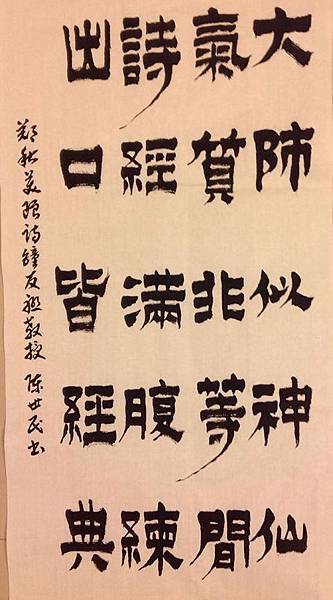 大師似神仙
氣質非等閒
詩經滿腹練
出口皆經典
鄭秋美題詩鐘友聯教授 陳世民書